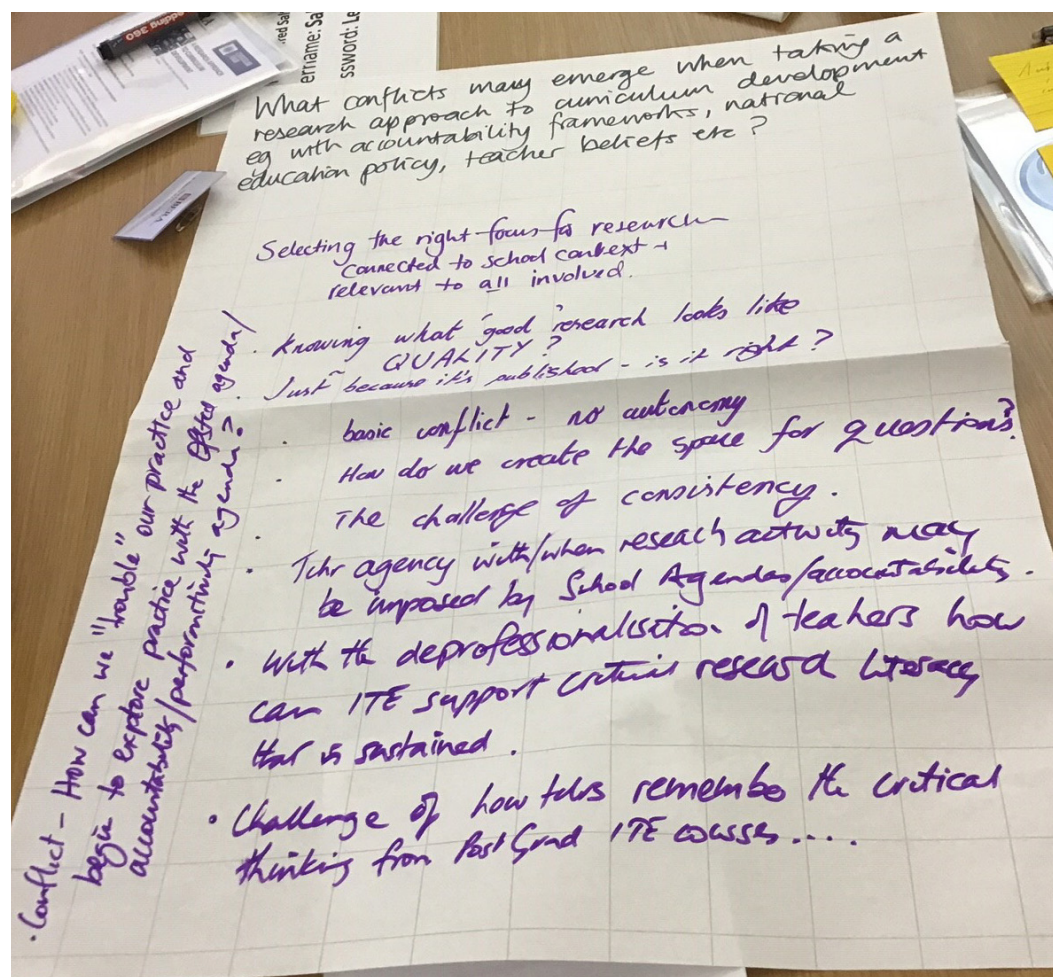 edding 360
ername: Sa
ssword: Le
What conflicts many emerge when taking a
research approach to curriculum development
eg with accountability frameworks, national
education policy, teacher beliefs etc?
Selecting the right focus for research
connected to school context +
relevant to all involved.
· Knowing what 'good' research looks like
QUALITY?
· Just because it's published - is it right?
· basic conflict - no autonomy
· How do we create the space for questions?
The challenge of consistency.
· Tchr agency with/when reseach activity may
be imposed by School Agendas/accountability.
· With the deprofessionalisation of teachers how
can ITE support critical research literacy
that is sustained.
· Challenge of how tchrs remember the critical
thinking from PostGrad ITE courses....
· Conflict - How can we "trouble" our practice and
begin to explore practice with the Ofsted agenda/
accountability/performitivity agenda?